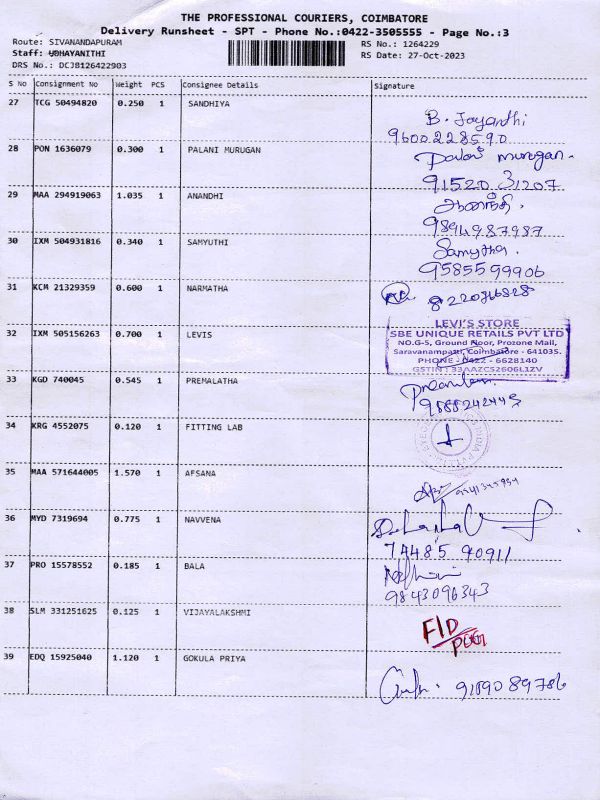 THE PROFESSIONAL COURIERS, COIMBATORE
Delivery Runsheet - SPT - Phone No.:0422-3505555 - Page No.:3
Route: SIVANANDAPURAM RS No.: 1264229
Staff: UDHAYANITHI RS Date: 27-Oct-2023
DRS No.: DCJB126422903
S No Consignment No Weight PCS Consignee Details Signature
27 TCG 50494820 0.250 1 SANDHIYA
B. Jayanthi
9600228590
28 PON 1636079 0.300 1 PALANI MURUGAN
Palani murugan.
91520 31207
29 MAA 294919063 1.035 1 ANANDHI
ஆனந்தி.
9894987987
30 IXM 504931816 0.340 1 SAMYUTHI
Samytha.
9585599906
31 KCM 21329359 0.600 1 NARMATHA
32 IXM 505156263 0.700 1 LEVIS
LEVI'S STORE
SBE UNIQUE RETAILS PVT LTD
NO.G-5, Ground Floor, Prozone Mall,
Saravanampatti, Coimbatore - 641035.
PHONE - 0422 - 6628140
GSTIN : 33AAZCS2606L1ZV
33 KGD 740045 0.545 1 PREMALATHA
34 KRG 4552075 0.120 1 FITTING LAB
35 MAA 571644005 1.570 1 AFSANA
36 MYD 7319694 0.775 1 NAVVENA
74485 90911
37 PRO 15578552 0.185 1 BALA
9843096343
38 SLM 331251625 0.125 1 VIJAYALAKSHMI
F/D
39 EDQ 15925040 1.120 1 GOKULA PRIYA